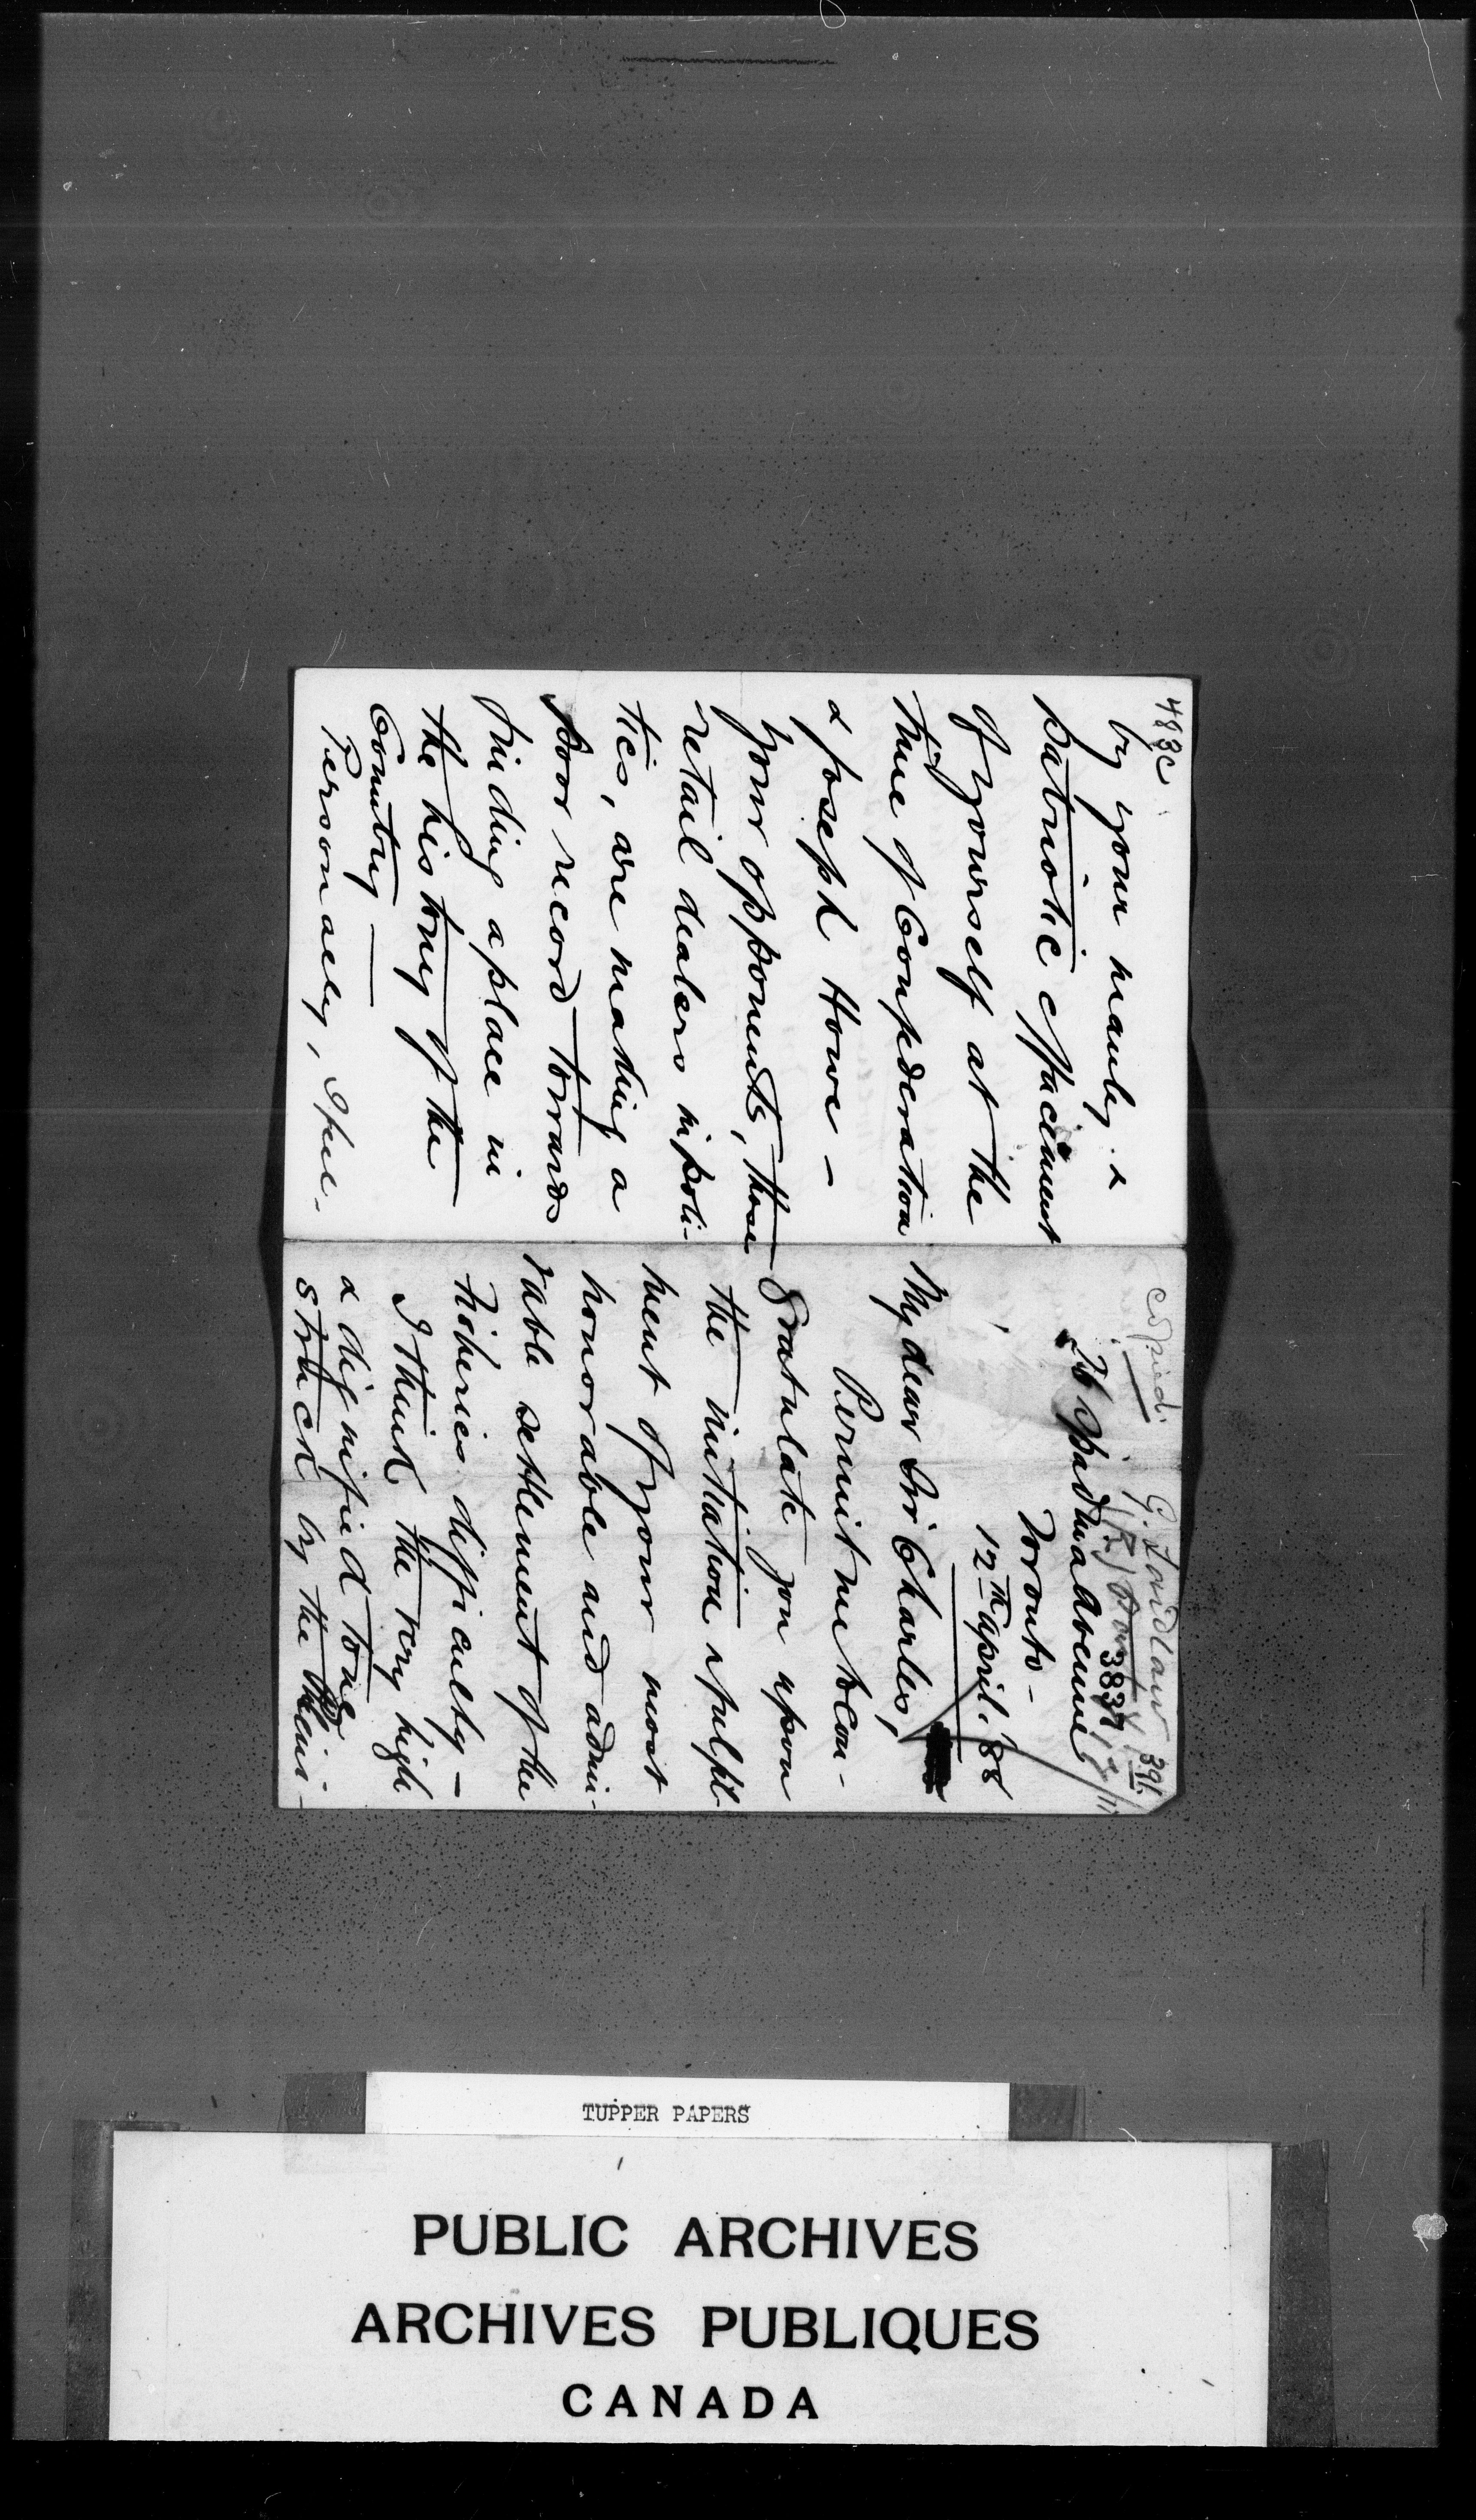 488c
by your manly &
patriotic effacement
of yourself at the
time of Confederation
& Joseph Howe –
your opponents, those
retail dealers in poli-
tics, are making a
poor record towards
finding a place in
the history of the
Country —
Personally, I fee-
copied
G. Laidlaw
391
3837
Spadina Avenue
Toronto –
12th April. '88
My dear Sir Charles,
Permit me to con-
gratulate you upon
the initiation & fulfil-
ment of your most
honorable and admi-
rable settlement of the
Fisheries difficulty –
I think the very high
& dignified tone
struck by the
TUPPER PAPERS
PUBLIC ARCHIVES
ARCHIVES PUBLIQUES
CANADA